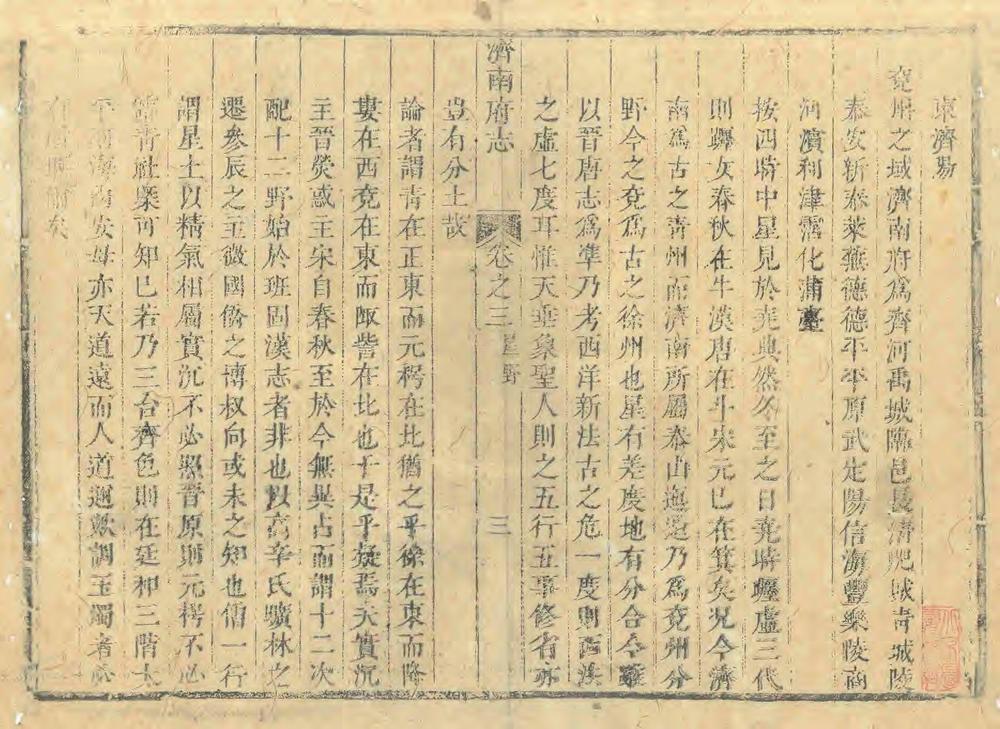 東濟易
兗州之域濟南府爲齊河禹城臨邑長清肥城靑城陵
泰安新泰萊蕪德德平平原武定陽信海豐樂陵商
河濱利津霑化蒲臺
按四時中星見於堯典然冬至之日堯時躔虛三代
則躔女春秋在牛漢唐在斗宋元已在箕矣况今濟
南爲古之靑州而濟南所屬泰山迤邐乃爲兗州分
野今之兗爲古之徐州也星有差度地有分合今雖
以晉唐志爲準乃考西洋新法古之危一度則西漢
之虛七度耳惟天垂象聖人則之五行五事修省亦
濟南府志
卷之三
星野
三
豈有分土哉
論者謂靑在正東而元枵在北猶之乎徐在東而降
婁在西兗在東而陬訾在北也于是乎疑焉夫實沉
主晉熒惑主宋自春秋至於今無異占而謂十二次
配十二野始於班固漢志者非也以高辛氏曠林之
遷參辰之主微國僑之博叔向或未之知也僧一行
謂星土以精氣相屬實沉不必照晉原則元枵不必
靑社槩可知巳若乃三台齊色則在廷和三階
海安毋亦天道遠而人道邇歟調玉燭者必